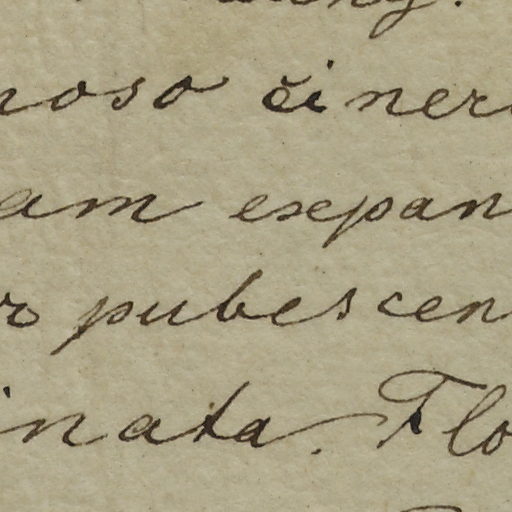 noso ciner
am expan
r pubescen
inata. Flo